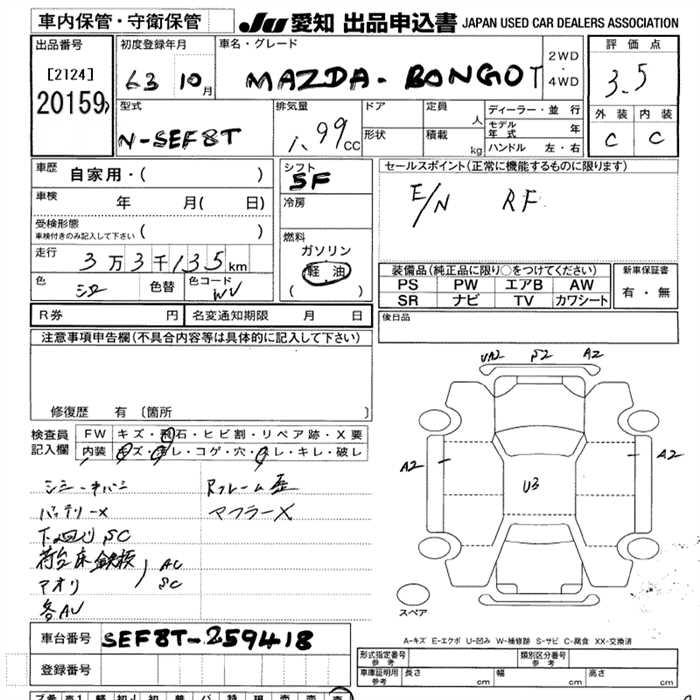 車内保管・守衛保管
JU 愛知 出品申込書 JAPAN USED CAR DEALERS ASSOCIATION
出品番号
[2124]
20159
初度登録年月
63 10月
車名・グレード
MAZDA - BONGO T
2WD
・
4WD
評価点
3.5
外装 内装
C C
型式
N-SEF8T
排気量
1.99cc
ドア
形状
定員 人
積載 kg
ディーラー・並行
モデル年式 年
ハンドル 左・右
車歴 自家用・( )
車検 年 月( 日)
受検形態
車検付きのみ記入して下さい ( )
走行 3万3千135km
色 シロ 色替 色コード WV
シフト
5F
冷房
燃料
ガソリン
軽油
( )
セールスポイント(正常に機能するものに限ります)
E/N RF
装備品(純正品に限り○をつけてください)
PS PW エアB AW
SR ナビ TV カワシート
新車保証書
有・無
R券 円 名変通知期限 月 日
後日品
注意事項申告欄(不具合内容等は具体的に記入して下さい)
修復歴 有 〔箇所 〕
検査員
記入欄
FW キズ・飛石・ヒビ割・リペア跡・X要
内装 キズ・汚レ・コゲ・穴・スレ・キレ・破レ
Rフレーム歪
バッテリーX マフラーX
下回り SC
荷台床鉄板 AU
アオリ SC
各AU
UA2 S2 A2
A2 A2
U3
スペア
A-キズ E-エクボ U-凹み W-補修跡 S-サビ C-腐食 XX-交換済
車台番号 SEF8T-259418
登録番号
形式指定番号
参考
類別区分番号
参考
車庫証明用
参考
長さ cm 幅 cm 高さ cm